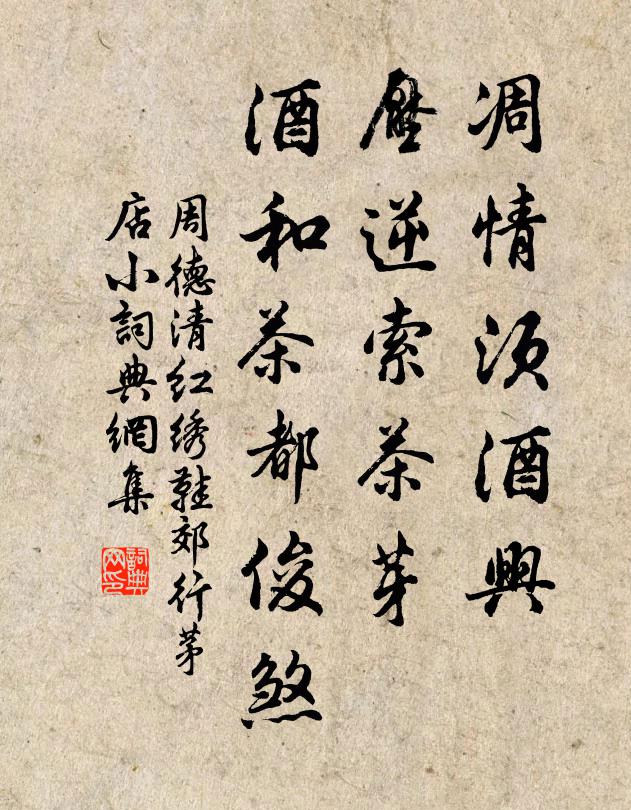 调情须酒興
壓逆索茶芽
酒和茶都俊煞
周德清红绣鞋郊行茅
店小詞典網集
詞典网印